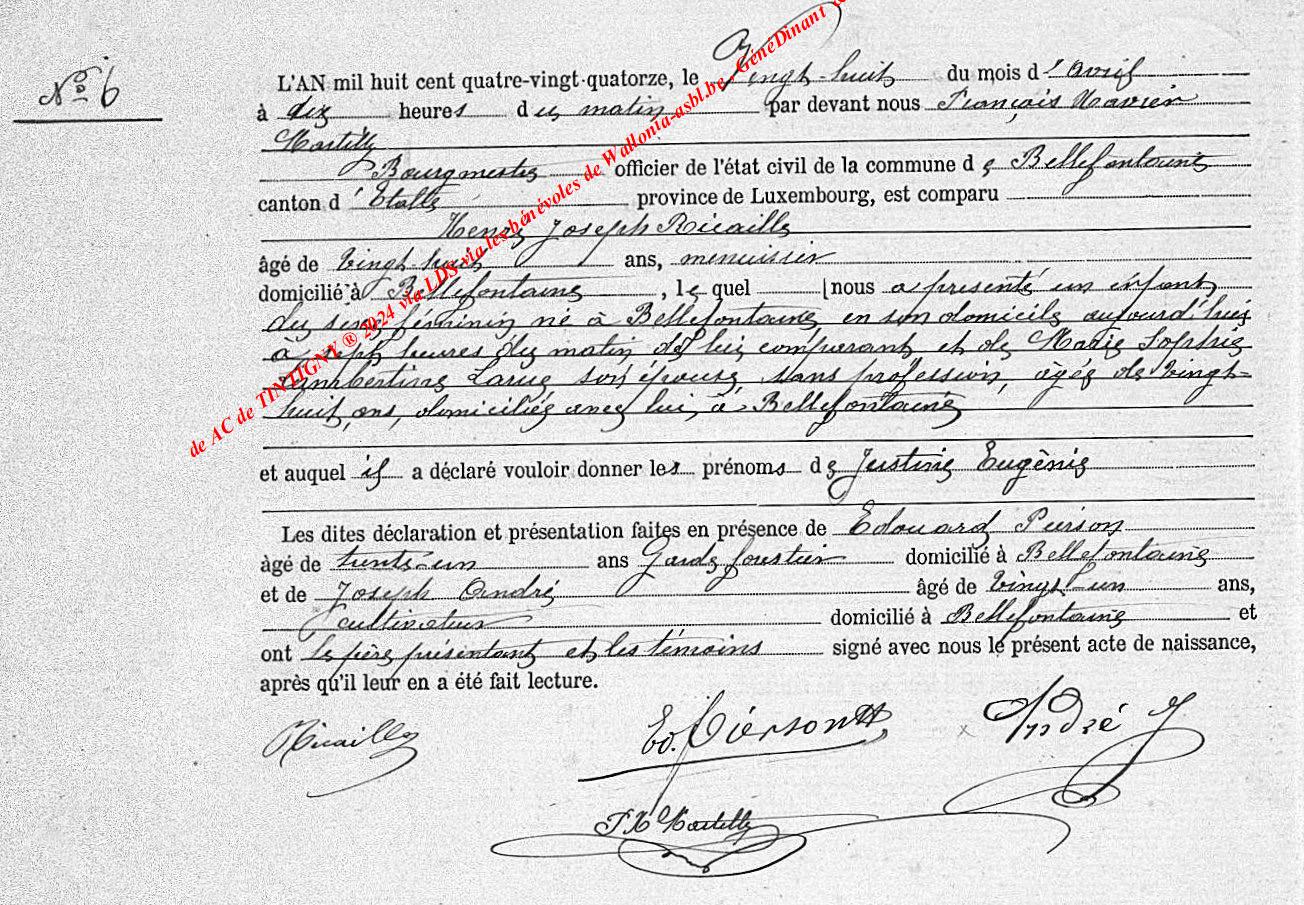 N° 6
L'AN mil huit cent quatre-vingt-quatorze, le Vingt-huit du mois d'avril
à dix heures du matin par devant nous François Xavier
Bourgmestre officier de l'état civil de la commune de Bellefontaine
canton d'Etalle province de Luxembourg, est comparu
Henri Joseph Ricaille
âgé de vingt-huit ans, menuisier
domicilié à Bellefontaine, lequel nous a présenté un enfant
du sexe féminin né à Bellefontaine en son domicile aujourd'hui
à sept heures du matin de lui comparant et de Marie Sophie
Lambertine Larue son épouse, sans profession, âgée de vingt-
huit ans, domiciliée avec lui à Bellefontaine
et auquel il a déclaré vouloir donner les prénoms de Justine Eugènie
Les dites déclaration et présentation faites en présence de Edouard Pierson
âgé de trente-un ans Garde forestier domicilié à Bellefontaine
et de Joseph André âgé de vingt-un ans,
cultivateur domicilié à Bellefontaine et
ont le père présentant et les témoins signé avec nous le présent acte de naissance,
après qu'il leur en a été fait lecture.
Ricaille Ed. Pierson André J
F X
de AC de TINTIGNY ® 2024 via LDS via les bénévoles de Wallonia-asbl.be, GénéDinant